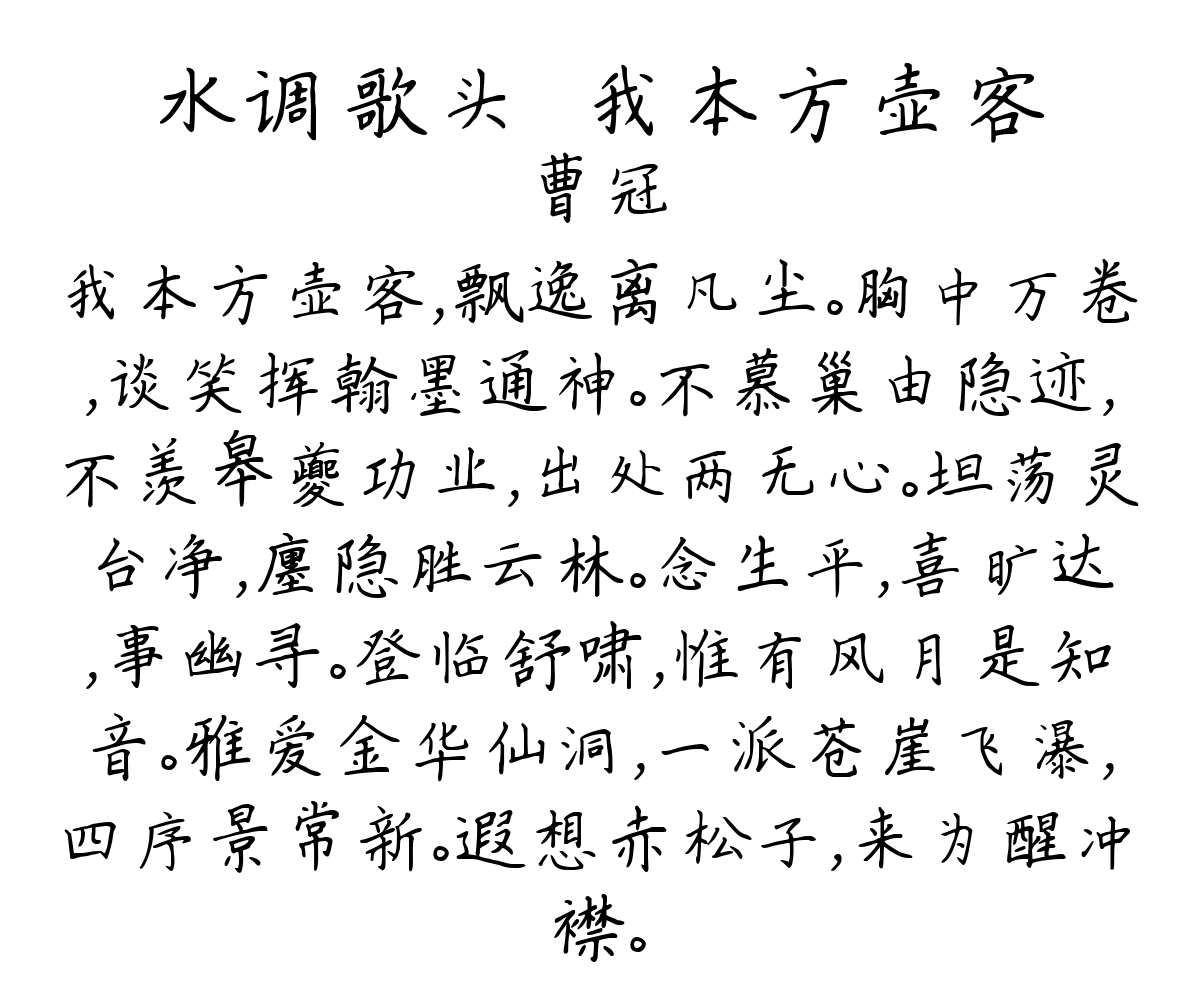 水调歌头 我本方壶客
曹冠
我本方壶客,飘逸离凡尘。胸中万卷
,谈笑挥翰墨通神。不慕巢由隐迹,
不羡皋夔功业,出处两无心。坦荡灵
台净,廛隐胜云林。念生平,喜旷达
,事幽寻。登临舒啸,惟有风月是知
音。雅爱金华仙洞,一派苍崖飞瀑,
四序景常新。遐想赤松子,来为醒冲
襟。